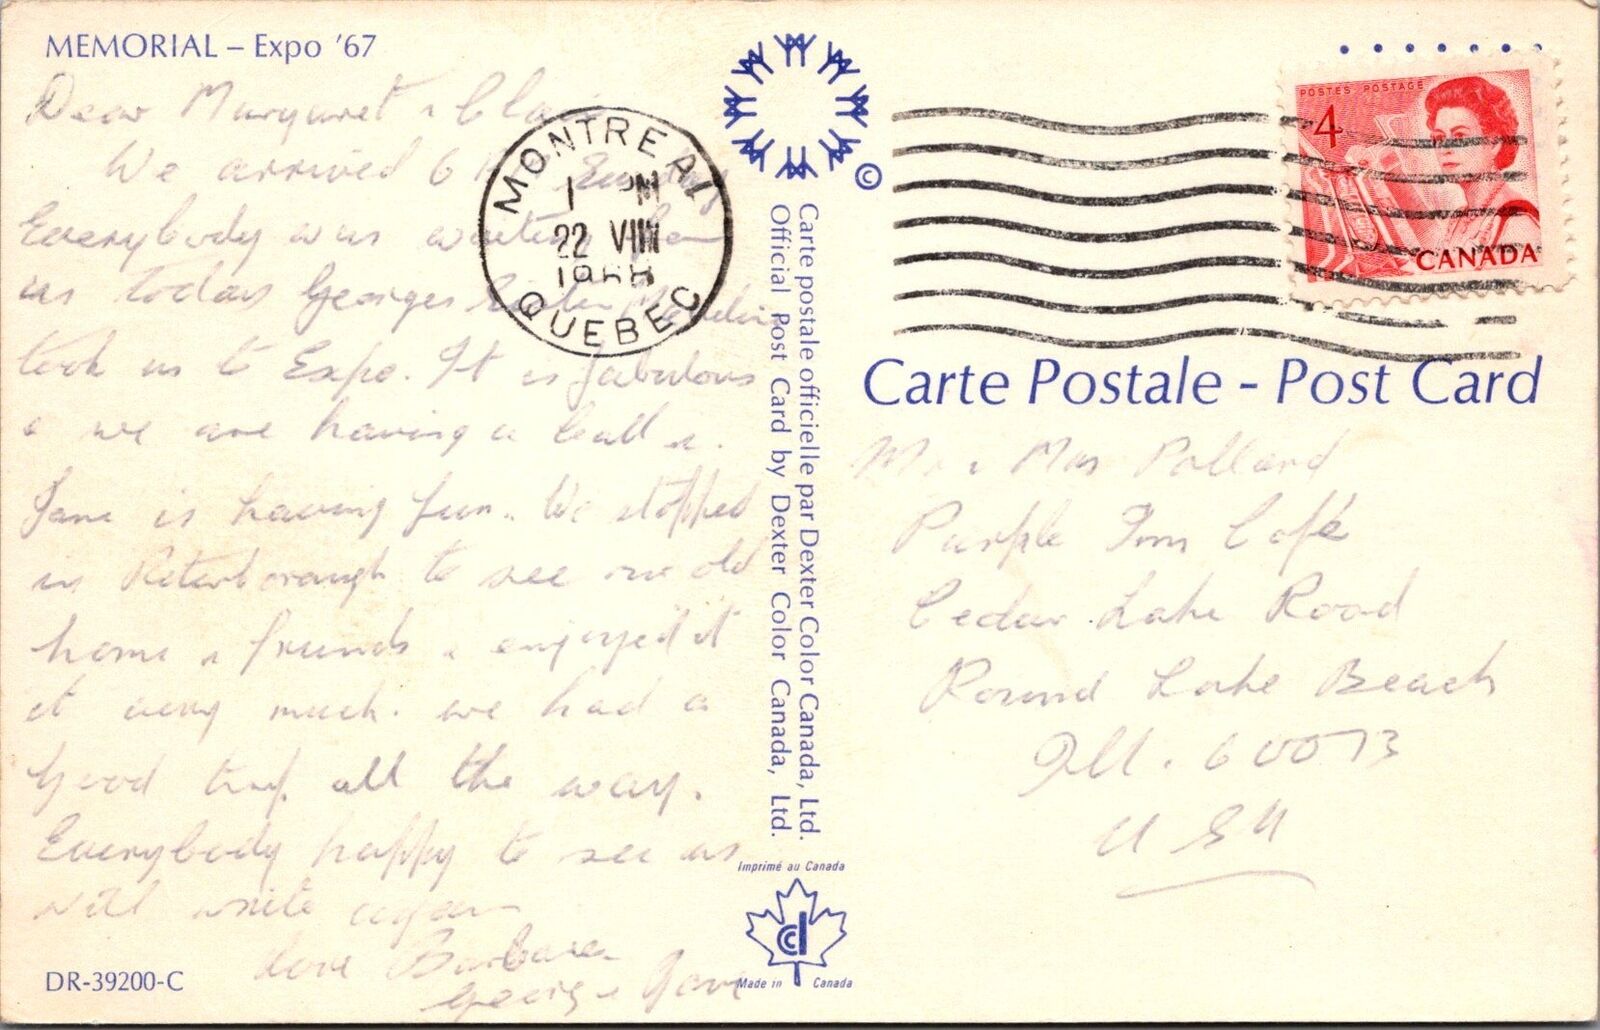 MEMORIAL – Expo '67
Dear Margaret &
We arrived 6 PM Sunday
Everybody was waiting for
us today Georges Sister
took us to Expo. It is fabulous
& we are having a ball &.
Jane is having fun. We stopped
in Peterborough to see our old
home & friends & enjoyed it
it very much. we had a
good trip all the way.
Everybody happy to see us
will write again
Love Barbara
George & Jane
DR-39200-C
MONTREAL
1 PM
22 VIII
QUEBEC
©
Carte postale officielle par Dexter Color Canada, Ltd.
Official Post Card by Dexter Color Canada, Ltd.
Imprimé au Canada
Made in Canada
POSTES POSTAGE
4
CANADA
Carte Postale - Post Card
Mr & Mrs Pollard
Purple Inn Café
Cedar Lake Road
Round Lake Beach
Ill. 60073
USA